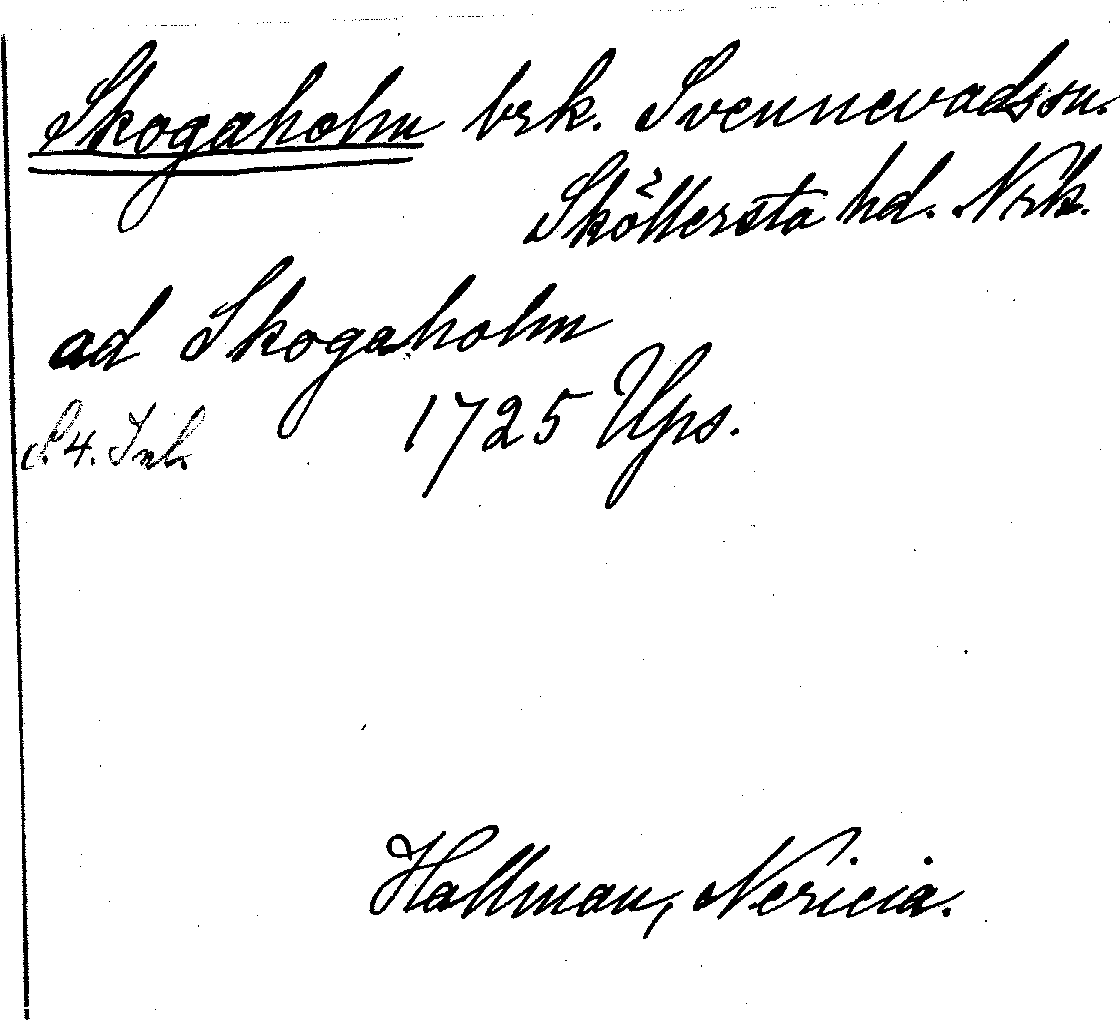 Skogaholm brk. Svennevadssn.
Sköllersta hd. Nrk.
ad Skogaholm
1725 Ups.
S. 4. Inl.
Hallman, Nericia.